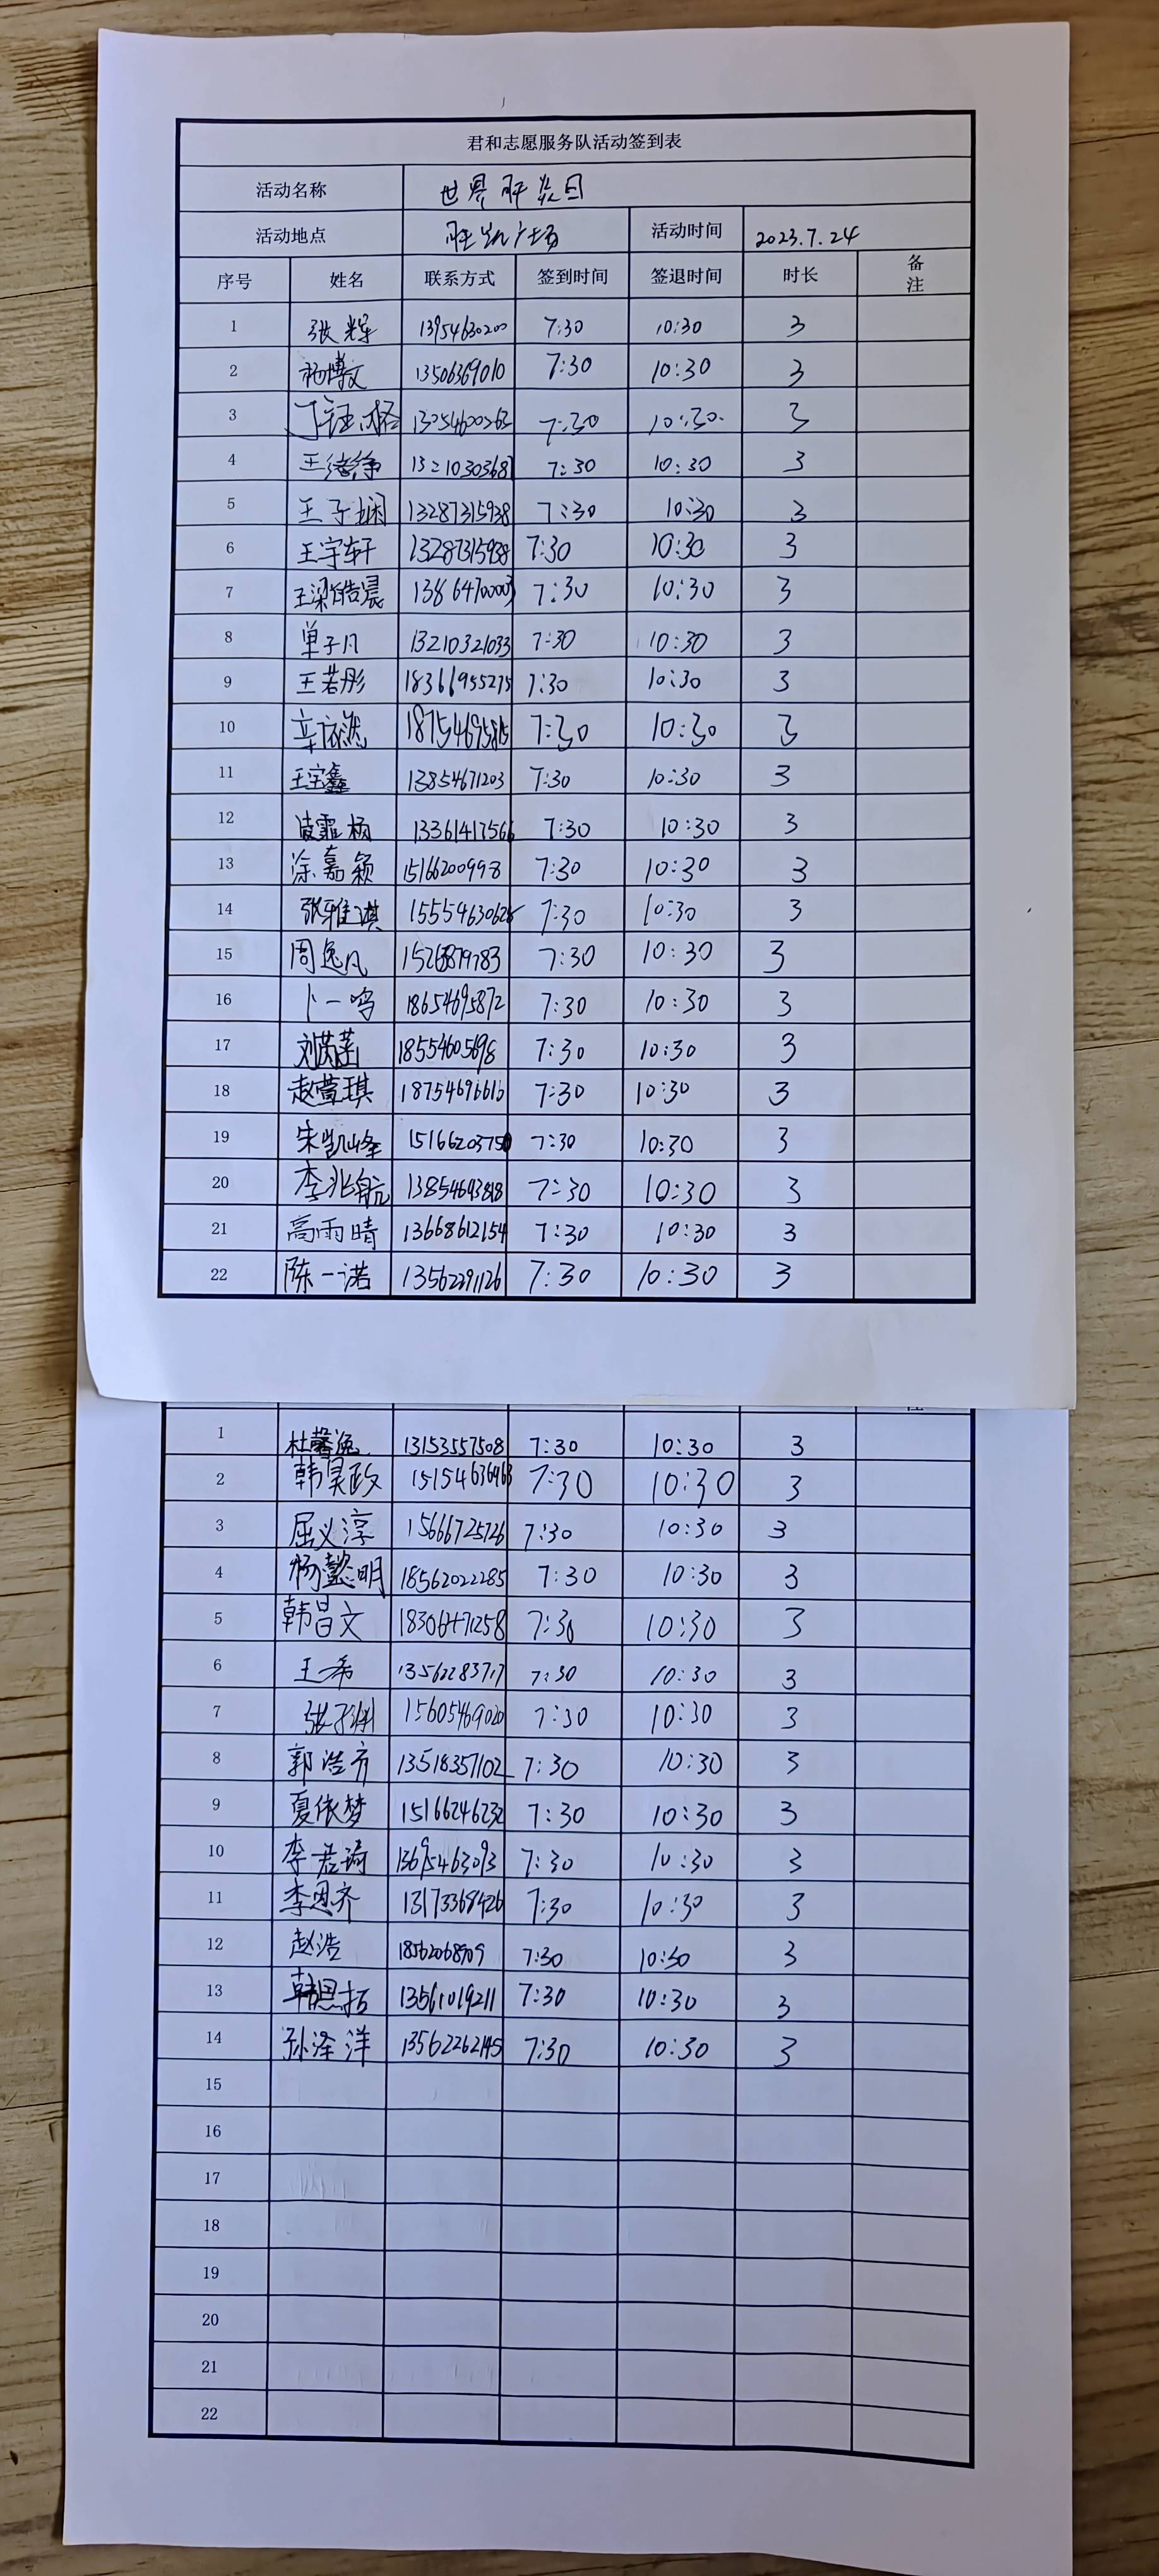 君和志愿服务队活动签到表
活动名称 世界肝炎日
活动地点 胜凯广场 活动时间 2023.7.24
序号 姓名 联系方式 签到时间 签退时间 时长 备注
1 张辉 13954630200 7:30 10:30 3
2 杨博文 13506369010 7:30 10:30 3
3 7:30 10:30 3
4 13210303687 7:30 10:30 3
5 王子娴 13287315938 7:30 10:30 3
6 王宇轩 13287315938 7:30 10:30 3
7 王梁皓晨 13864700003 7:30 10:30 3
8 单子凡 13210321033 7:30 10:30 3
9 王若彤 18366955275 7:30 10:30 3
10 7:30 10:30 3
11 王宝鑫 13854671203 7:30 10:30 3
12 13361417566 7:30 10:30 3
13 涂嘉颖 15166200998 7:30 10:30 3
14 张雅淇 7:30 10:30 3
15 周逸凡 7:30 10:30 3
16 卜一鸣 18654695872 7:30 10:30 3
17 18554605698 7:30 10:30 3
18 赵萱琪 7:30 10:30 3
19 朱凯峰 7:30 10:30 3
20 李兆航 7:30 10:30 3
21 高雨晴 13668612154 7:30 10:30 3
22 陈一诺 13562291126 7:30 10:30 3
1 杜馨逸 13153557508 7:30 10:30 3
2 韩昊政 7:30 10:30 3
3 屈义淳 15666725726 7:30 10:30 3
4 杨懿明 18562022285 7:30 10:30 3
5 韩昌文 18306471258 7:30 10:30 3
6 王希 13562283717 7:30 10:30 3
7 张子渊 15605469020 7:30 10:30 3
8 郭浩齐 13518357102 7:30 10:30 3
9 夏依梦 15166246232 7:30 10:30 3
10 李若琦 13695463093 7:30 10:30 3
11 李恩齐 13173368426 7:30 10:30 3
12 赵浩 18562068909 7:30 10:30 3
13 韩思拓 13561019211 7:30 10:30 3
14 孙泽洋 13562262145 7:30 10:30 3
15
16
17
18
19
20
21
22